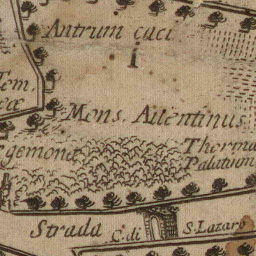 Antrum caci
1
Tem
Mons. Auentinus
cæ
Egemona
Therma
Palatium
Strada
C. di
S. Lazaro